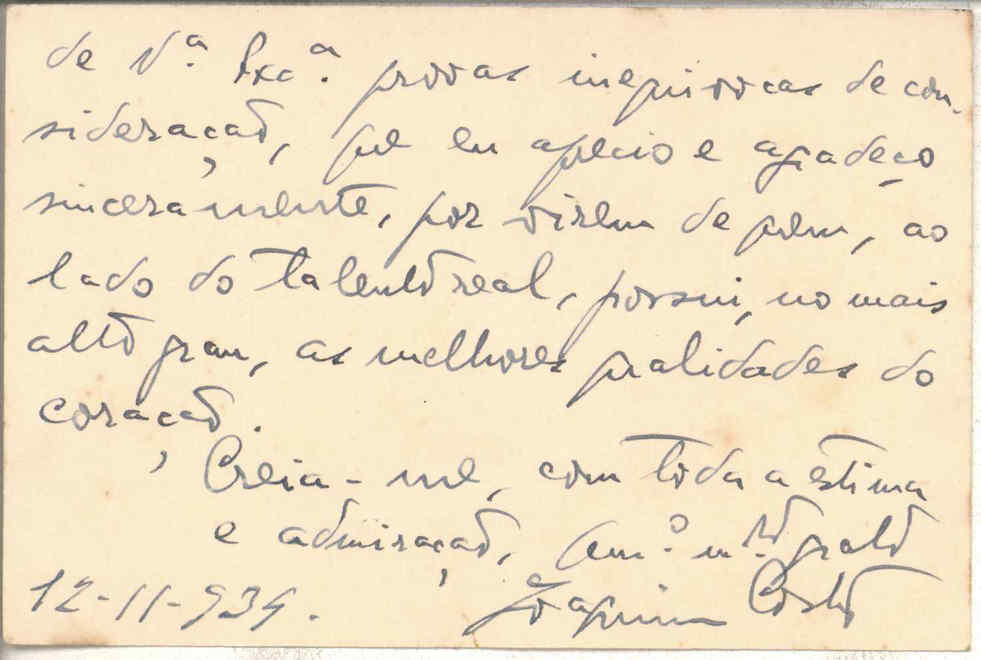 de V.ª Exc.ª provas inequivocas de con-
sideração, que eu aprecio e agradeço
sinceramente, por virem de quem, ao
lado do talento real, possui, no mais
alto grau, as melhores qualidades do
coração.
Creia-me, com toda a estima
e admiração, Am.º m.to grato
Joaquim Costa
12-11-934.